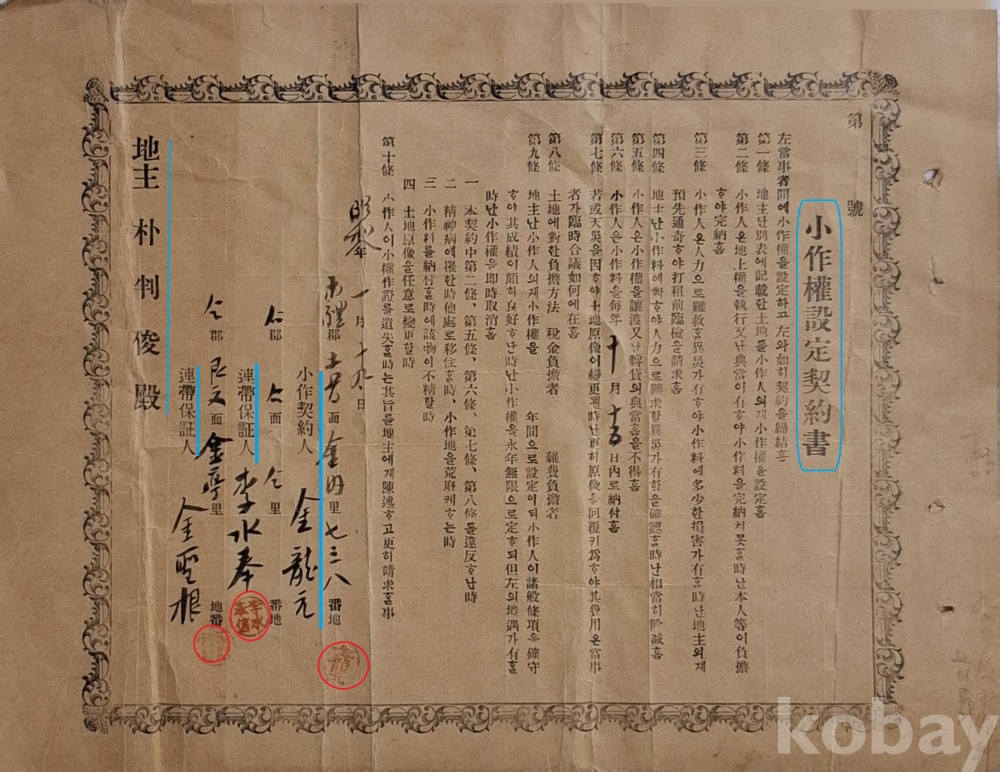 第 號
小作權設定契約書
左當事者間에小作權을設定하고左와如히契約을締結홈
第一條 地主난別表에記載한土地를小作人의게小作權을設定홈
第二條 小作人은地上權을執行又난典當이有ᄒᆞ야小作料을完納치못ᄒᆞᆯ時난本人等이負擔
ᄒᆞ야完納홈
第三條 小作人은人力으로難救ᄒᆞᆯ異災가有ᄒᆞ야小作料에多少한損害가有ᄒᆞᆯ時난地主의게
預先通奇ᄒᆞ야打租前臨檢을請求홈
第四條 地主난小作料에對ᄒᆞ야人力으로難求할異災가有함을確認ᄒᆞᆯ時난相當히減홈
第五條 小作人은小作權을讓渡又난轉貸의典當홈을不得홈
第六條 小作人은小作料을每年十月 日內로納付홈
第七條 若或天災을因ᄒᆞ야土地原像이變更될時난更히原像을回覆키爲ᄒᆞ야其費用은當事
者가臨時合議如何에在홈
第八條 土地에對한負擔方法 稅金負擔者 雜費負擔者
第九條 地主난小作人의게小作權을 年間으로設定이되小作人이諸般條項을確守
ᄒᆞ야其成績이頗히良好ᄒᆞ난時난小作權을永年無限으로定ᄒᆞ되但左의境遇가有ᄒᆞᆯ
時난小作權을即時取消홈
一 本契約中第二條、第五條、第六條、第七條、第八條를違反ᄒᆞ난時
二 精神病에罹한時他處로移住ᄒᆞᆯ時、小作地을荒廢케ᄒᆞ는時
三 小作料를納付ᄒᆞᆯ時에該物이不精할時
四 土地原像을任意로變更할時
第十條 小作人이小作證를遺失ᄒᆞᆯ時는其旨를地主에게陳述ᄒᆞ고更히請求ᄒᆞᆯ事
昭和 年 一月 十九日
郡 面 金內里 七三八番地
小作契約人 金龍元
仝郡 仝面 仝里 番地
連帶保証人 李水奉
仝郡 面 金亭里 地番
連帶保証人 金聖根
地主 朴判俊 殿
kobay